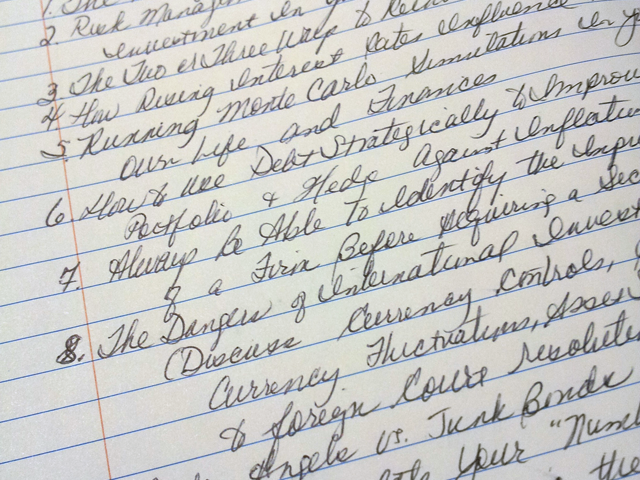 1. The
2. Risk Manage
Investment in y
3 The Two or Three Ways to
4 How Rising Interest Rates Influence
5. Running Monte Carlo Simulations in y
our Life and Finances
6 How to Use Debt Strategically to Improv
Portfolio & Hedge Against Inflation
7. Always Be Able To Identify the
of a Firm Before Acquiring a Sec
8. The Dangers of International Invest
(Discuss Currency Controls,
Currency Fluctuations, Asset
& foreign Court resolution
Angels vs. Junk Bonds
Your "Num
the